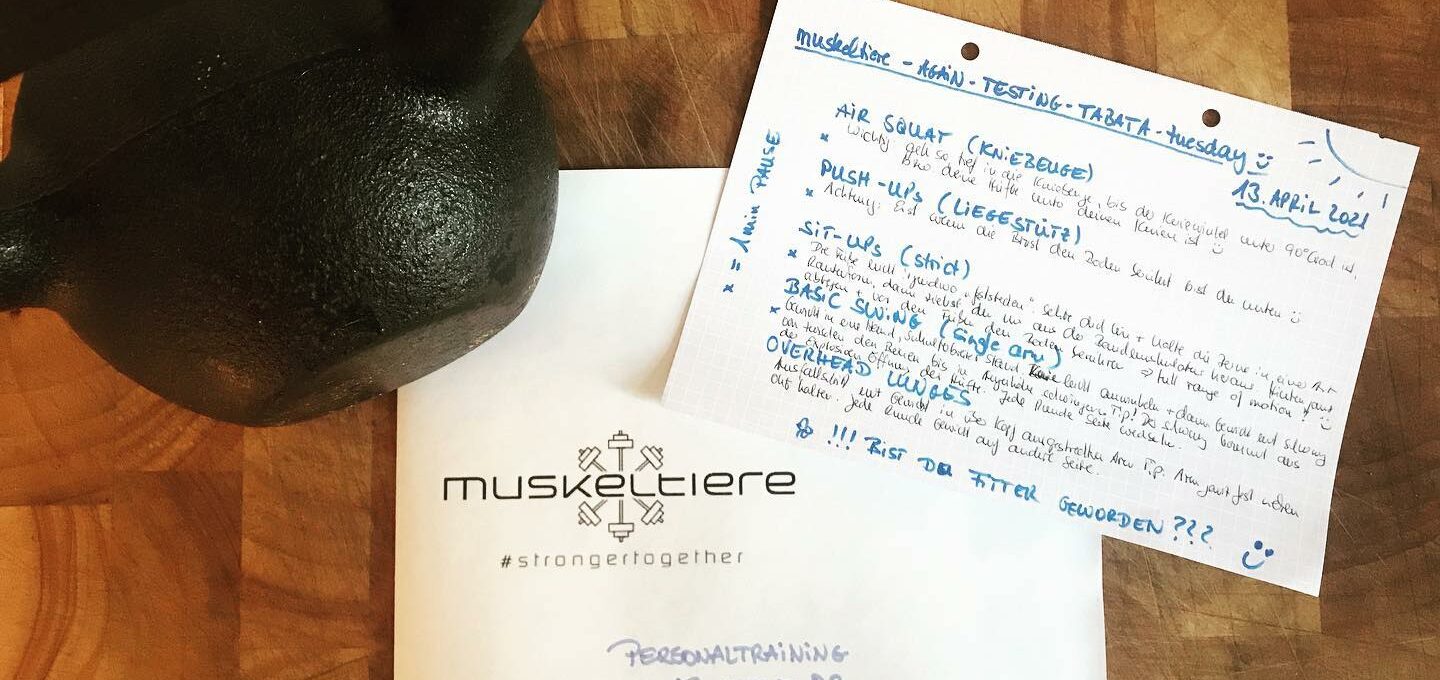 muskeltiere - AGAIN - TESTING - TABATA - tuesday
13. APRIL 2021
AIR SQUAT (KNIEBEUGE)
Wichtig: geh so tief in die Kniebeuge, bis der Kniewinkel unter 90° Grad ist,
bzw deine Hüfte unter deinen Knien ist
PUSH-UPs (LIEGESTÜTZ)
x Achtung: Erst wenn die Brust den Boden berührt bist du unten
SIT-UPs (strict)
x Die Füße nicht irgendwo "feststecken" setze dich hin + halte die Beine in einer Art
Rautenform, dann hebst du nur aus der Bauchmuskulatur heraus
+ vor den Füßen den Boden berühren => full range of motion
BASIC SWING (single arm)
x Gewicht in eine Hand, schulterbreiter Stand leicht anwinkeln + dann Gewicht mit Schwung
den Beinen bis in Augenhöhe schwingen Tip! Der Schwung kommt aus
der Explosiven Öffnung der Hüfte. Jede Runde Seite wechseln.
OVERHEAD LUNGES
Ausfallschritt mit Gewicht in über Kopf ausgestreckten Arm Tip: Arm ganz fest neben
Ohr halten. Jede Runde Gewicht auf andere Seite.
!!! BIST DU FITTER GEWORDEN ???
x = 1 min PAUSE
muskeltiere
#strongertogether
PERSONALTRAINING